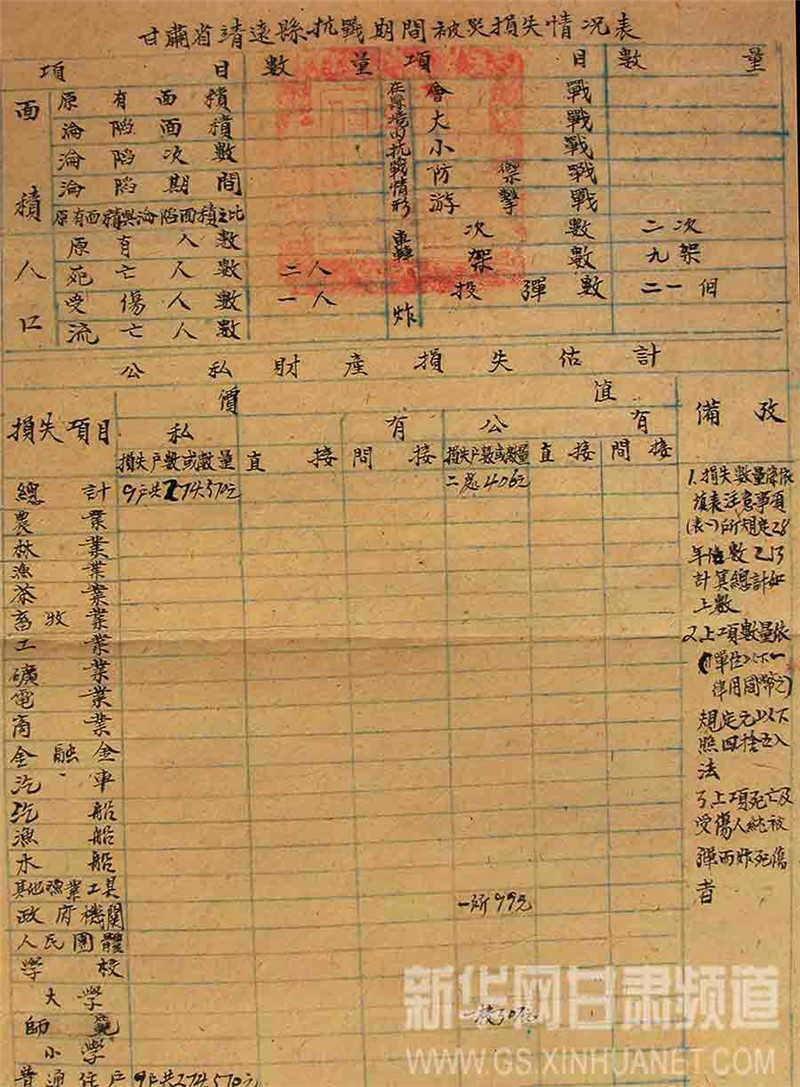 甘肅省靖遠縣抗戰期間被災損失情况表
項目 數量 項目 數量
面積 原有面積 在縣境内抗戰情形 會戰
淪陷面積 大戰
淪陷次數 小戰
淪陷期間 防禦戰
原有面積與淪陷面積之比 游擊戰
人口 原有人數 轟炸 次數 二次
死亡人數 二人 架數 九架
受傷人數 一人 投彈數 二一個
流亡人數
公私財產損失估計
損失項目 價值 備攷
私有 公有
損失户數或數量 直接 間接 損失户數或數量 直接 間接
總計 9户共274570元 二處406元
農業
林業
漁業
茶業
畜牧業
工業
礦業
電業
商業
金融金
汽車
汽船
漁船
木船
其他漁業工具
政府機關 一所99元
人民團體
學校
大學
師範 一校307元
小學
普通住户 9户共274570元
1.損失數量係依
填表注意事項
(表一)所規定28
年 數
計算總計如
上數
2.上項數量依
(單位以下一
律用國幣之)
規定元以下
照四捨五入
法
3上項死亡及
受傷人統被
彈而炸死傷
者
新华网甘肃频道
WWW.GS.XINHUANET.COM